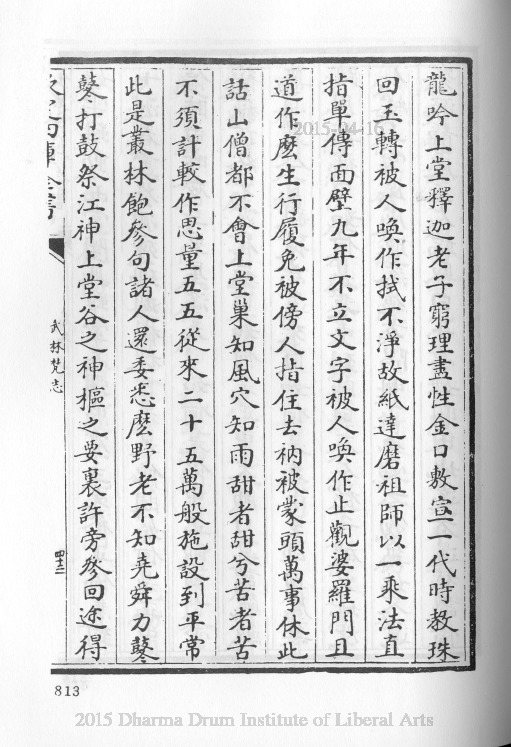 龍吟上堂釋迦老子窮理盡性金口敷宣一代時教珠
回玉轉被人喚作拭不淨故紙達磨祖師以一乘法直
指單傳面壁九年不立文字被人喚作止觀婆羅門且
道作麽生行履免被傍人指住去衲被蒙頭萬事休此
話山僧都不會上堂巢知風穴知雨甜者甜兮苦者苦
不須計較作思量五五從來二十五萬般施設到平常
此是叢林飽參句諸人還委悉麽野老不知堯舜力鼕
鼕打鼓祭江神上堂谷之神樞之要裏許旁參回途得
武林梵志
813
2015-04-16
2015 Dharma Drum Institute of Liberal Arts